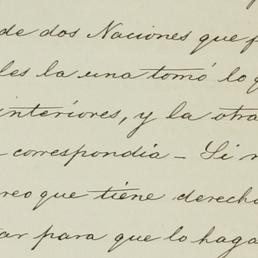 de dos Naciones que
les la una tomó lo
interiores, y la otra
correspondia – Si
reo que tiene derecho
ar para que lo haga